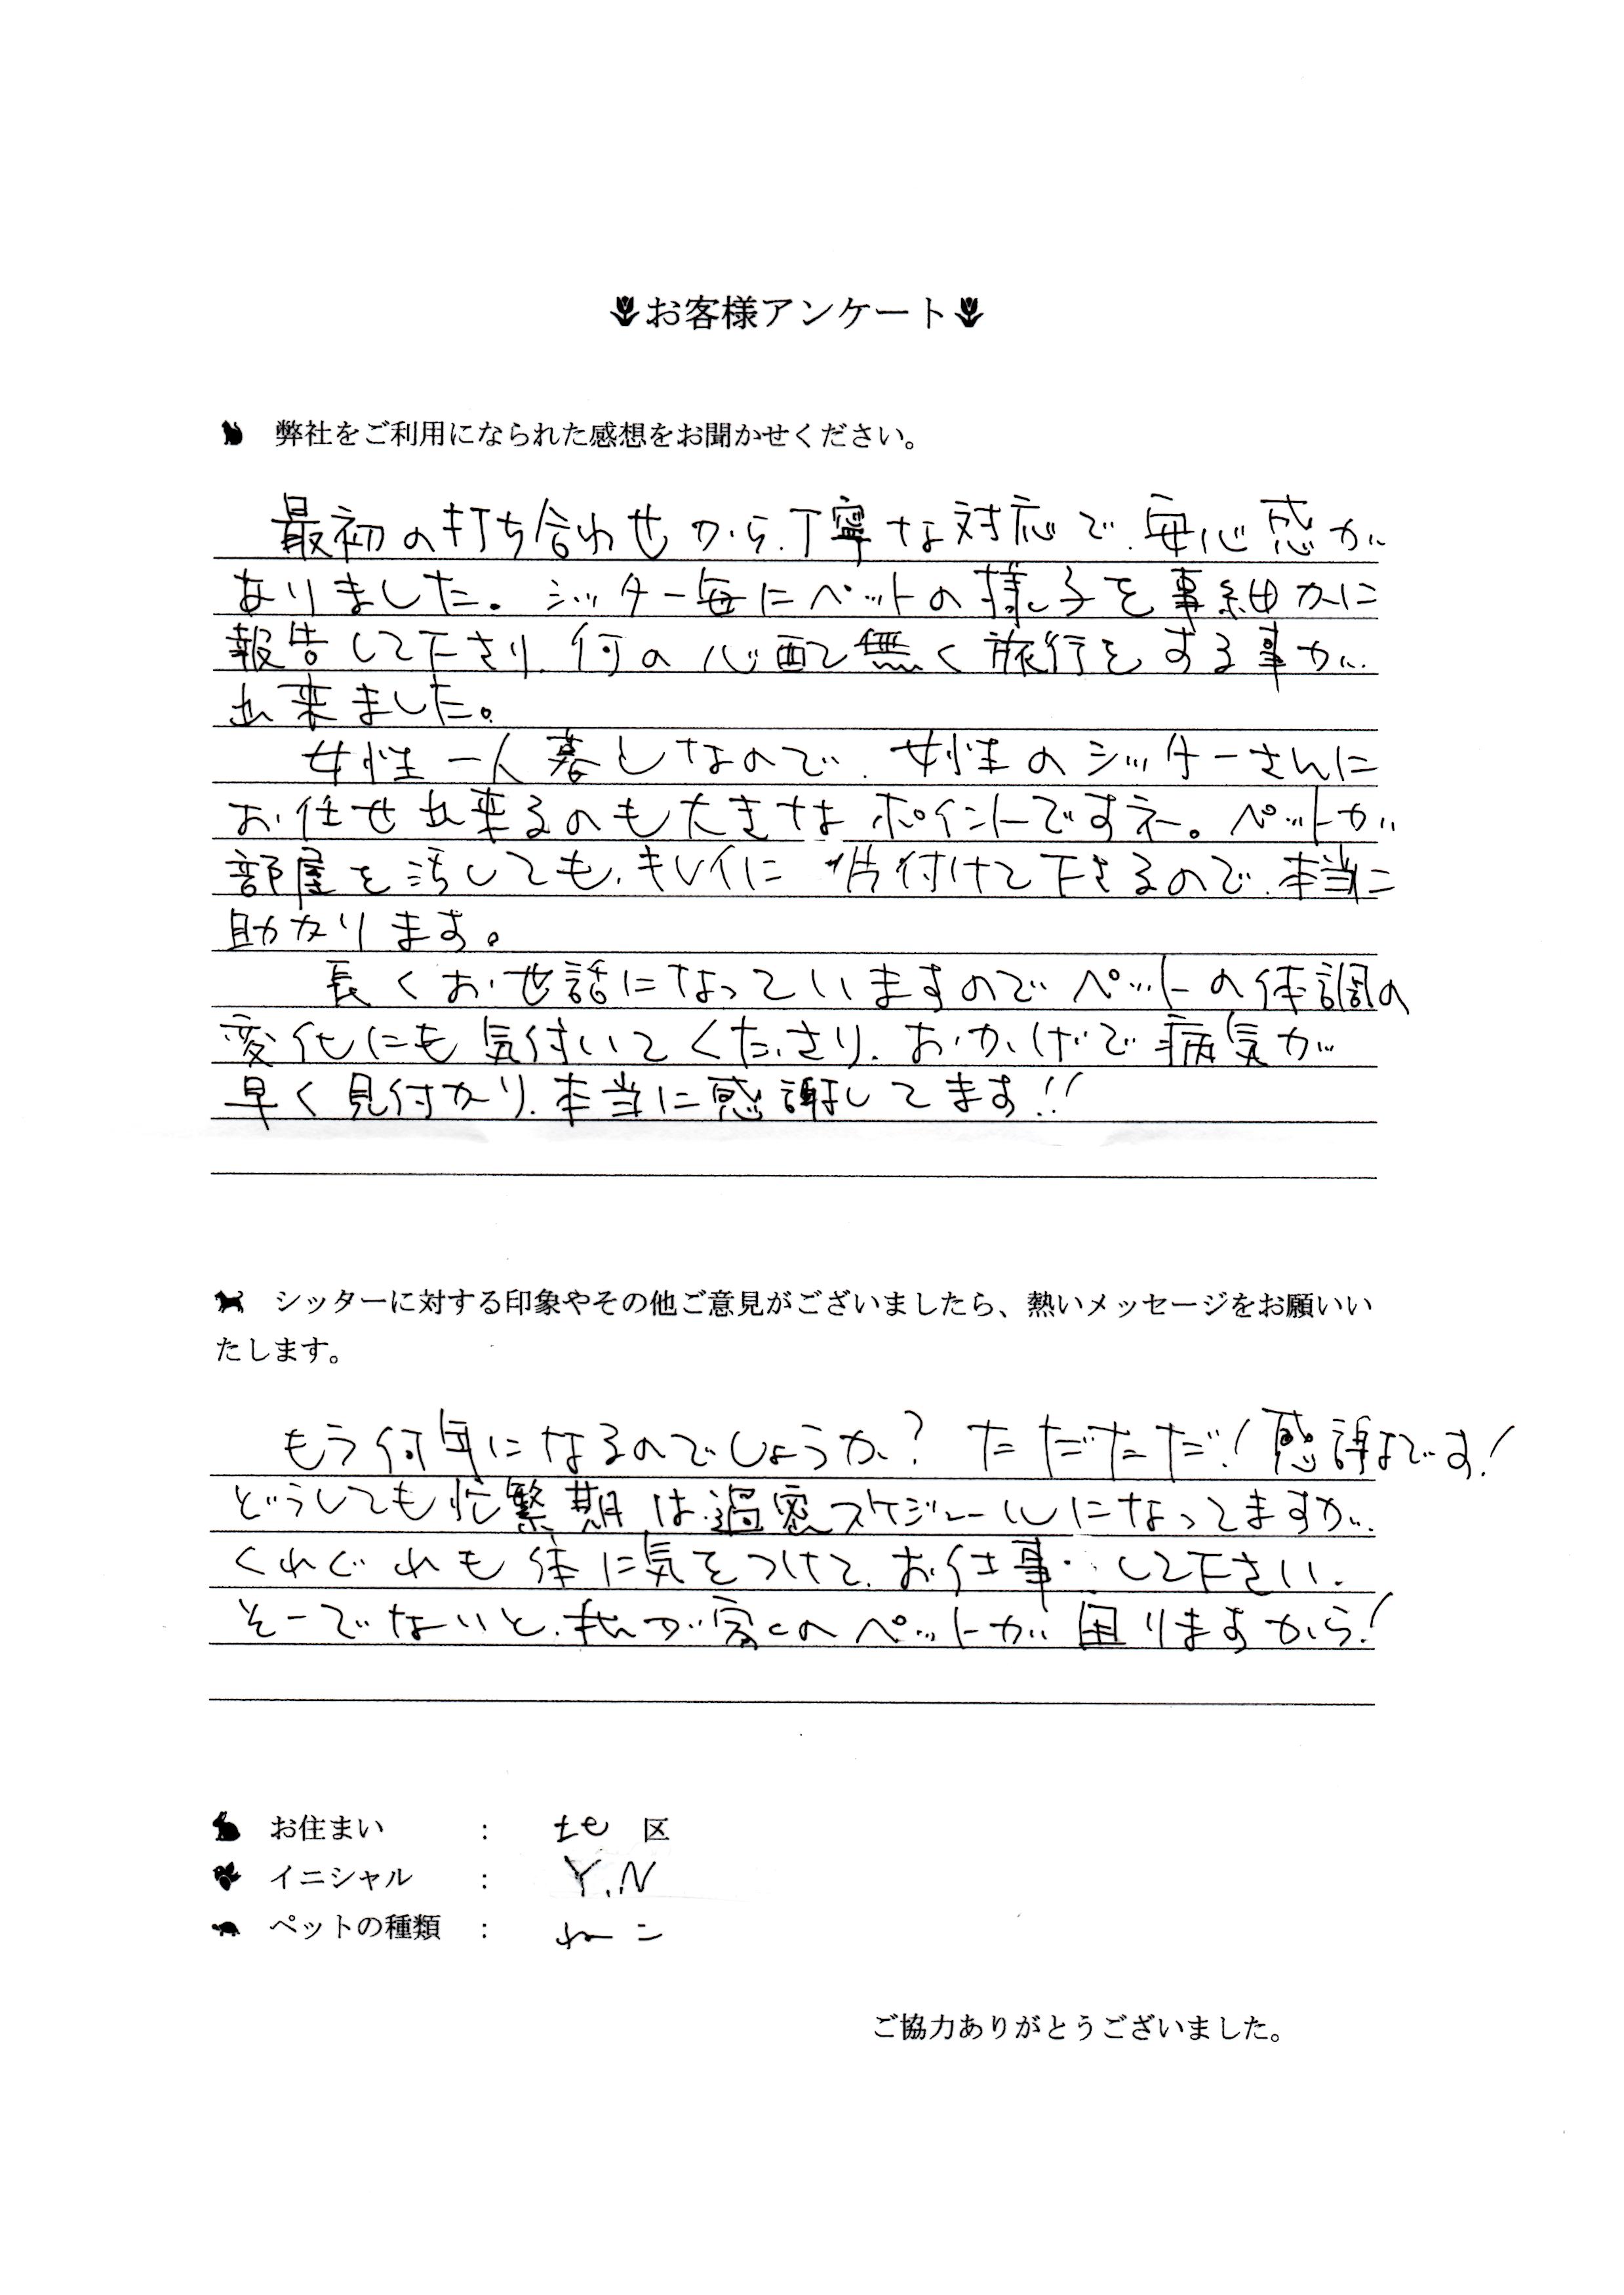 お客様アンケート
弊社をご利用になられた感想をお聞かせください。
最初の打ち合わせから、丁寧な対応で、安心感が
ありました。シッター毎にペットの様子を事細かに
報告して下さり、何の心配無く旅行をする事が
出来ました。
女性一人暮しなので、女性のシッターさんに
お任せ出来るのも大きなポイントですネ。ペットが
部屋を汚しても、キレイに片付けて下さるので、本当に
助かります。
長くお世話になっていますのでペットの体調の
変化にも気付いてくださり、おかげで病気が
早く見付かり、本当に感謝してます!!
シッターに対する印象やその他ご意見がございましたら、熱いメッセージをお願いい
たします。
もう何年になるのでしょうか? ただただ!感謝です!
どうしても忙繁期は過密スケジュールになってますが、
くれぐれも体に気をつけて、お仕事して下さい、
そーでないと、我が家のペットが困りますから!
お住まい : 区
イニシャル : Y.N
ペットの種類 : ねこ
ご協力ありがとうございました。